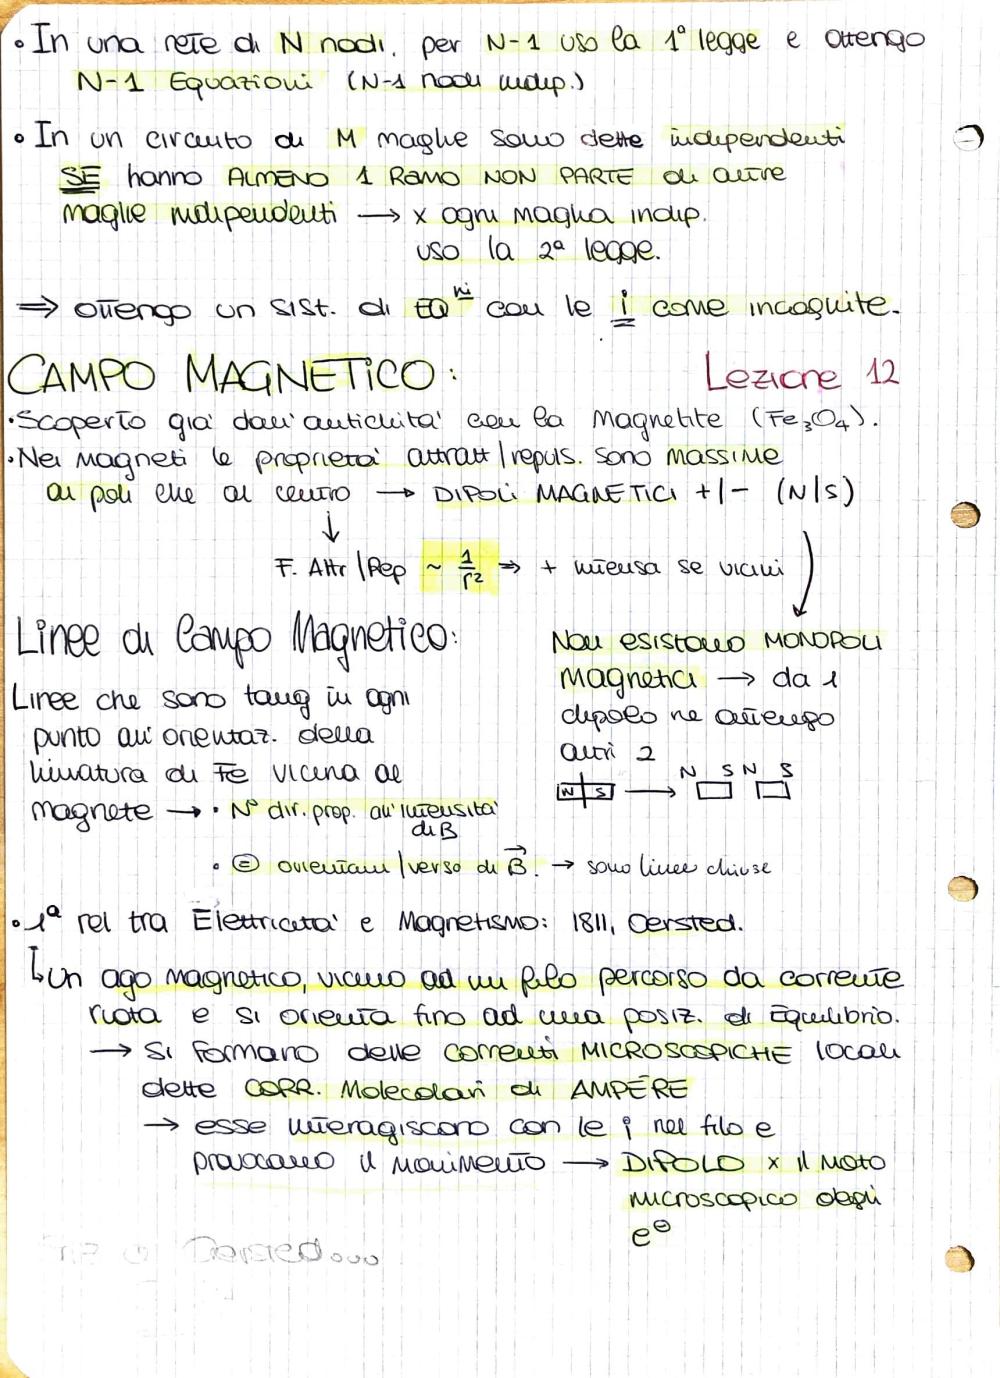 • In una rete di N nodi, per N-1 uso la 1° legge e ottengo
N-1 Equazioni (N-1 nodi indip.)
• In un circuito di M maglie sono dette indipendenti
SE hanno ALMENO 1 RAMO NON PARTE di altre
maglie indipendenti → x ogni maglia indip.
uso la 2ª legge.
⇒ ottengo un sist. di EQ^ni con le i come incognite.
CAMPO MAGNETICO: Lezione 12
• Scoperto già dall'antichità con la Magnetite (Fe₃O₄).
• Nei magneti le proprietà attratt/repuls. sono MASSIME
ai poli che al centro → DIPOLI MAGNETICI +/- (N/S)
↓
F. Attr/Rep ~ 1/r² ⇒ + intensa se vicini
Linee di Campo Magnetico:
Linee che sono tang in ogni
punto all'orientaz. della
limatura di Fe vicina al
magnete → • N° dir. prop. all'intensità
di B
• ⊜ orientam/verso di B⃗. → sono linee chiuse
Non esistono MONOPOLI
Magnetici → da 1
dipolo ne ottengo
altri 2
N S → N S N S
• 1ª rel tra Elettricità e Magnetismo: 1811, Oersted.
↳ Un ago magnetico, vicino ad un filo percorso da corrente
ruota e si orienta fino ad una posiz. di Equilibrio.
→ Si formano delle correnti MICROSCOPICHE locali
dette CORR. Molecolari di AMPÉRE
→ esse interagiscono con le i nel filo e
provocano il movimento → DIPOLO x il moto
microscopico degli
e⊖
Oersted...